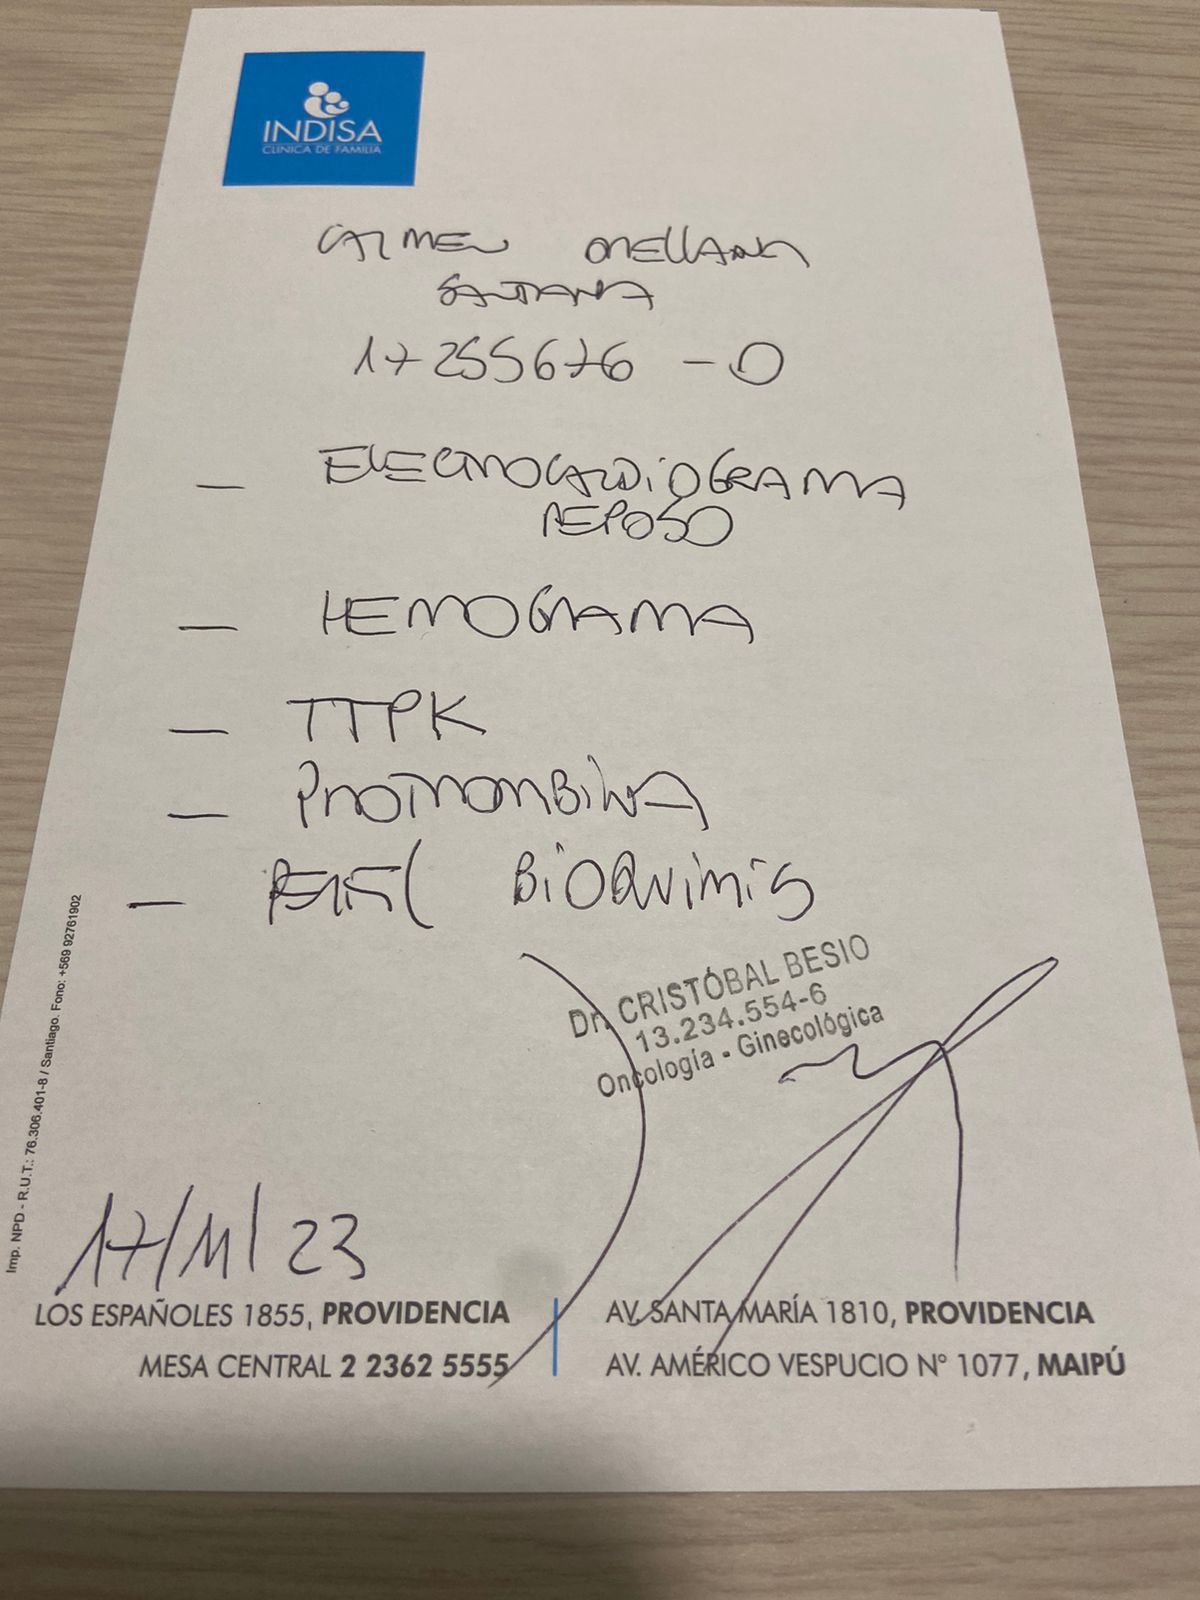 INDISA
CLÍNICA DE FAMILIA
CARMEN ORELLANA
SANTANA
17255676-0
- ELECTROCARDIOGRAMA
REPOSO
- HEMOGRAMA
- TTPK
- PROTROMBINA
- PERFIL BIOQUIMICO
Dr. CRISTÓBAL BESIO
13.234.554-6
Oncología - Ginecológica
17/11/23
Imp. NPD - R.U.T.: 76.306.401-8 / Santiago. Fono: +569 92761902
LOS ESPAÑOLES 1855, PROVIDENCIA
MESA CENTRAL 2 2362 5555
AV. SANTA MARÍA 1810, PROVIDENCIA
AV. AMÉRICO VESPUCIO N° 1077, MAIPÚ